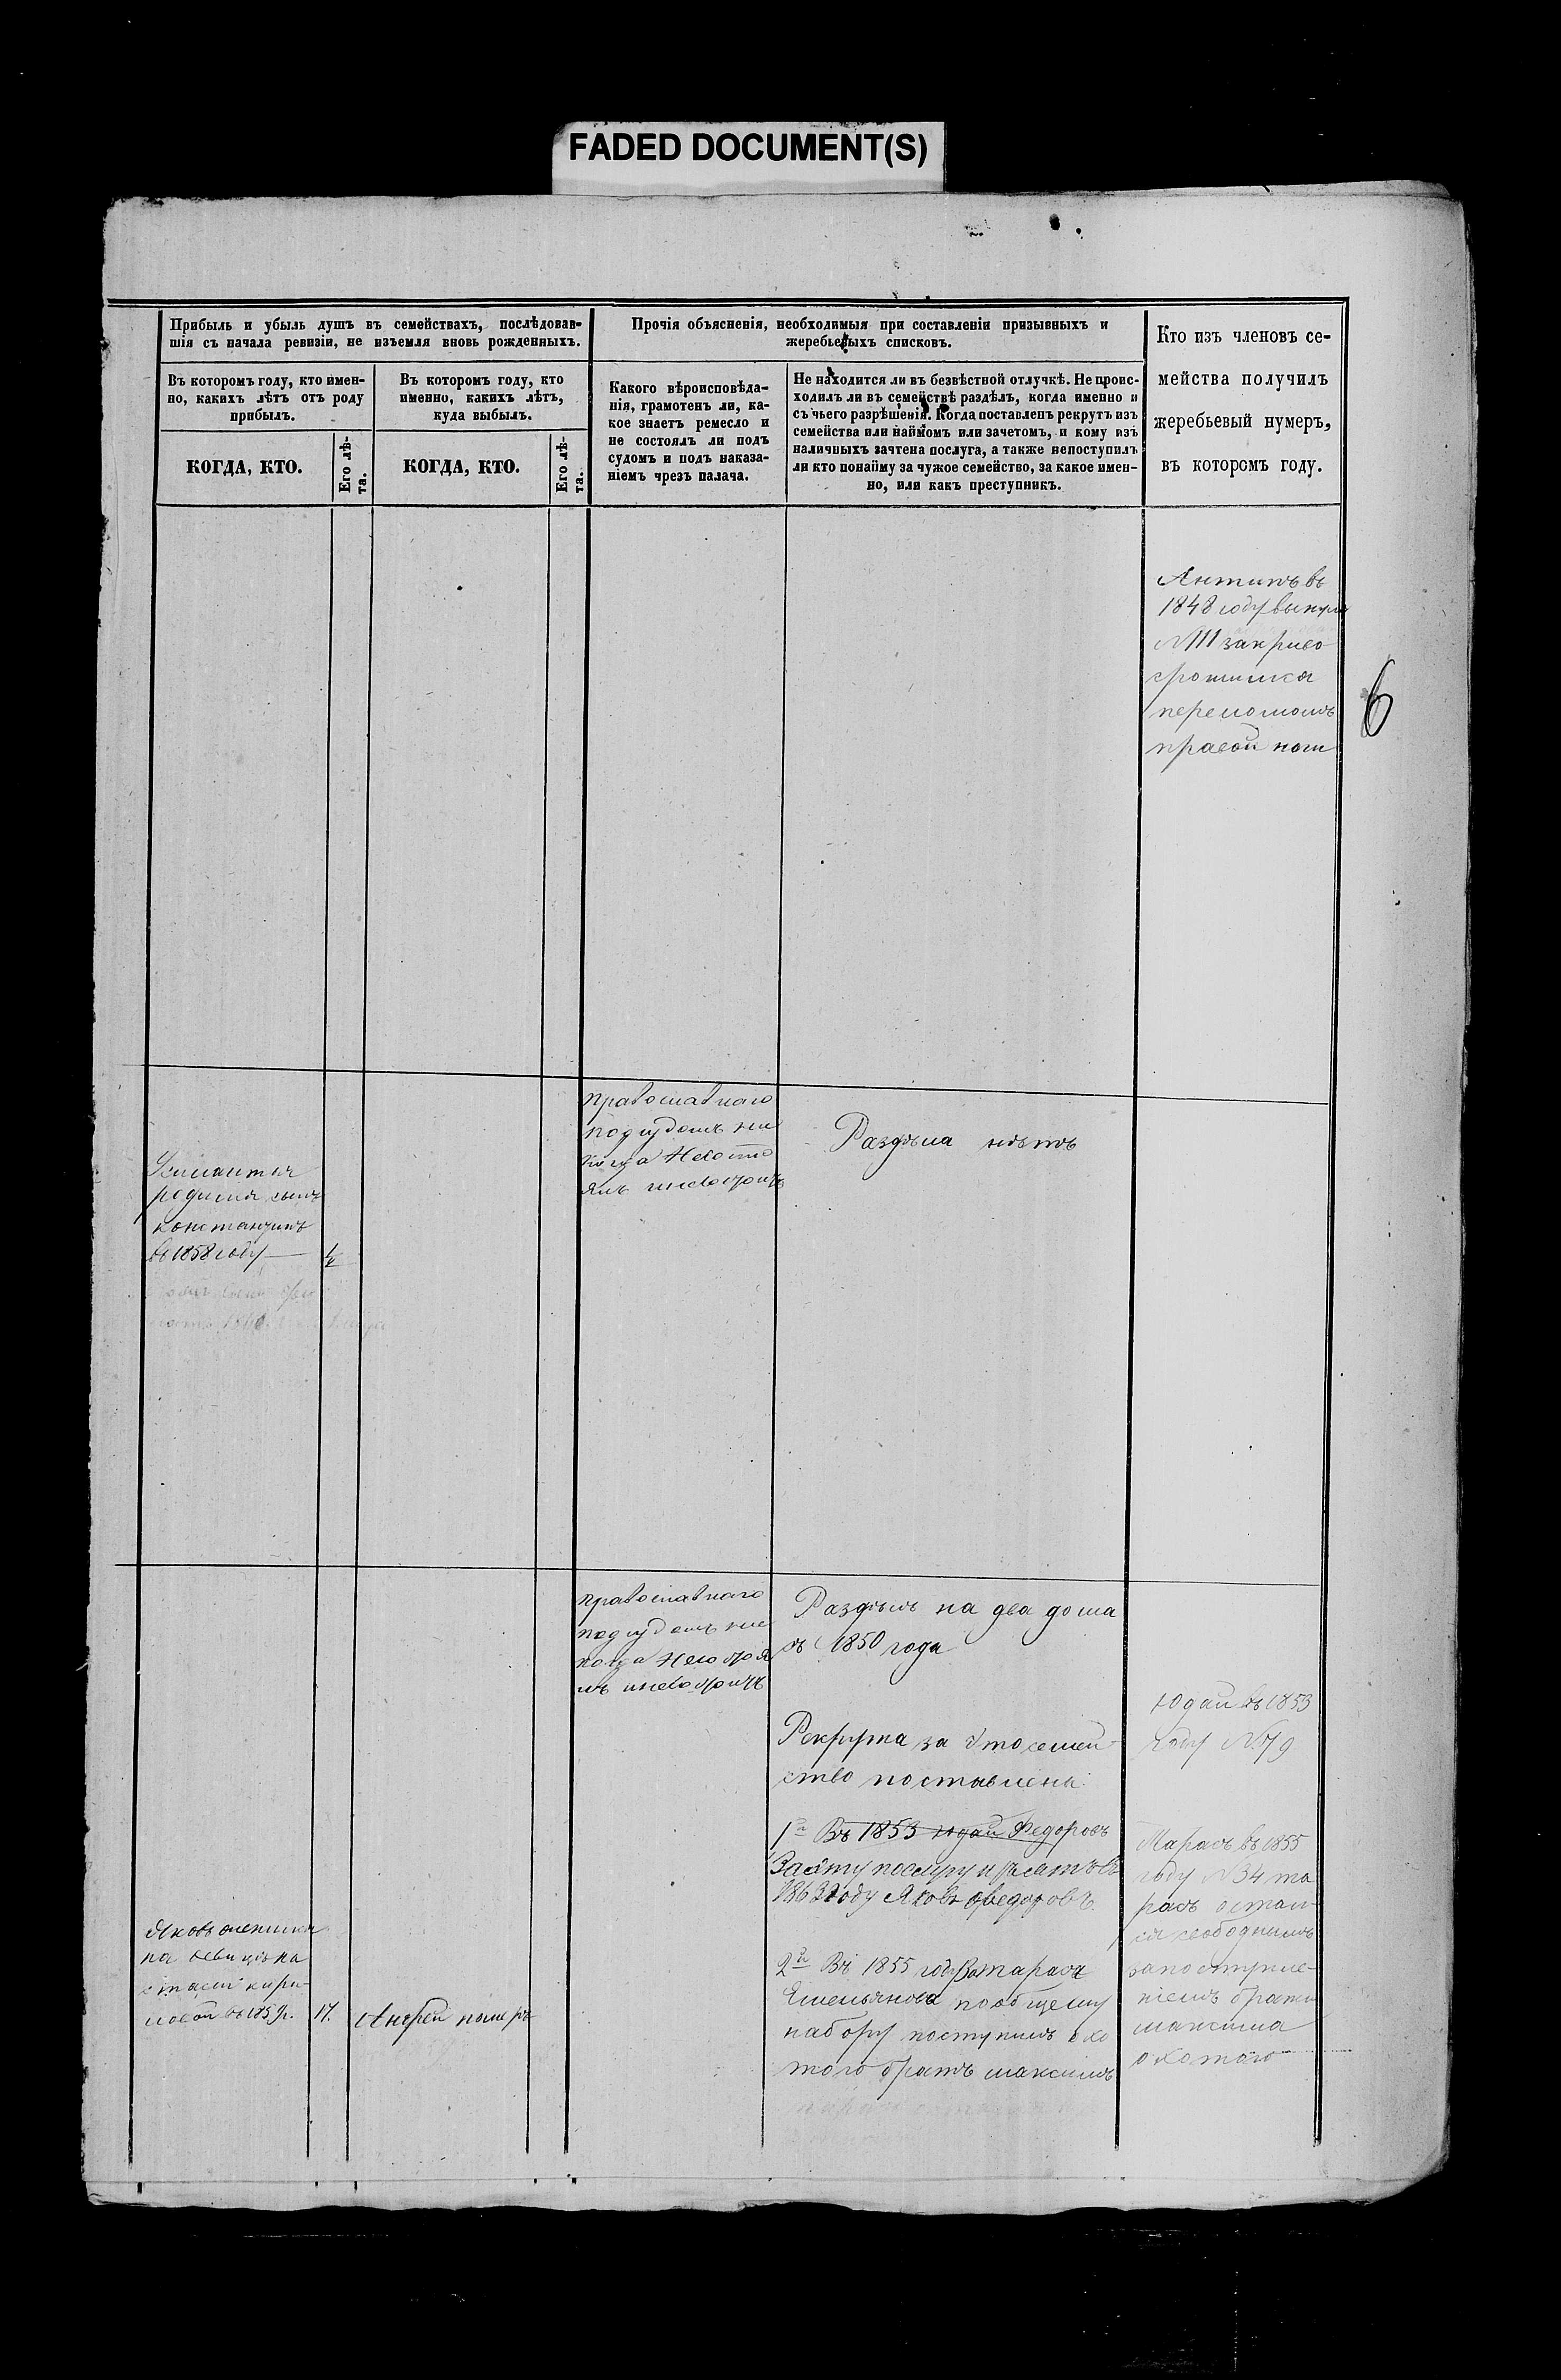 FADED DOCUMENT(S)
Прибыль и убыль душъ въ семействахъ, послѣдовав-
шія съ начала ревизіи, не изъемля вновь рожденныхъ.
Прочія объясненія, необходимыя при составленіи призывныхъ и
жеребьевыхъ списковъ.
Кто изъ членовъ се-
мейства получилъ
жеребьевый нумеръ,
въ которомъ году.
Въ которомъ году, кто имен-
но, какихъ лѣтъ отъ роду
прибылъ.
Въ которомъ году, кто
именно, какихъ лѣтъ,
куда выбылъ.
Какого вѣроисповѣда-
нія, грамотенъ ли, ка-
кое знаетъ ремесло и
не состоялъ ли подъ
судомъ и подъ наказа-
ніемъ чрезъ палача.
Не находится ли въ безвѣстной отлучкѣ. Не проис-
ходилъ ли въ семействѣ раздѣлъ, когда именно и
съ чьего разрѣшенія. Когда поставленъ рекрутъ изъ
семейства или наймомъ или зачетомъ, и кому изъ
наличныхъ зачтена послуга, а также непоступилъ
ли кто понайму за чужое семейство, за какое имен-
но, или какъ преступникъ.
КОГДА, КТО.
Его лѣ-
та.
КОГДА, КТО.
Его лѣ-
та.
Антипъ въ
1848 году вынулъ
N 111
переломомъ
правой ноги
6
православнаго
подсудомъ ни
когда несосто
ялъ
Раздѣла нѣтъ
родился сынъ
константинъ
въ 1858 году
православнаго
подсудомъ ни
когда несостоя
лъ
Раздѣлъ на два дома
съ 1850 года
Рекрута за это семей-
ство поставлены
1й Въ 1853 Юдай Федоровъ
Зачту послугу
1863 году Яковъ Федоровъ
2й Въ 1855 году За тараса
Емельянова пообщему
набору поступилъ охо
тою братъ максимъ
Юдай въ 1853
году N 79
Тарасъ въ 1855
году N 34 та
расъ остал-
ся свободнымъ
запоступле-
ніемъ брата
максима
охотою
Яковъ женился
на девицѣ на
стасьи кири-
ловой въ
17.
Андрей померъ